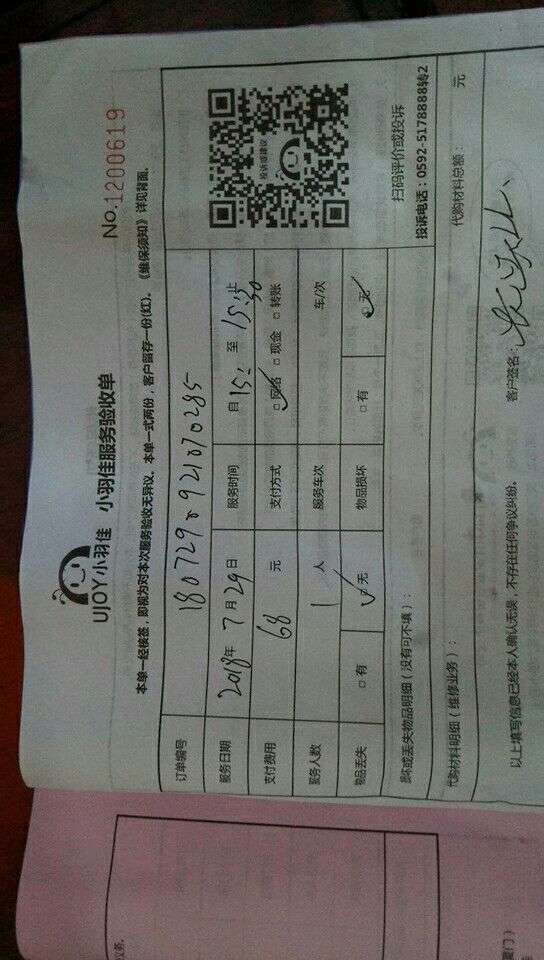 UJOY小羽佳 小羽佳服务验收单
No.1200619
本单一经核签，即视为对本次服务验收无异议。本单一式两份，客户留存一份(红)。《维保须知》详见背面。
订单编号 1807290921070285
服务日期 2018年7月29日 服务时间 自 15: 至 15:50 止
支付费用 68 元 支付方式 □网络 □现金 □转账
服务人数 1 人 服务车次 车/次
物品丢失 □有 □无 物品损坏 □有 □无
投诉或建议
扫码评价或投诉
投诉电话：0592-5178888转2
损坏或丢失物品明细（没有可不填）：
代购材料明细（维修业务）： 代购材料总额： 元
以上填写信息已经本人确认无误，不存在任何争议纠纷。 客户签名：